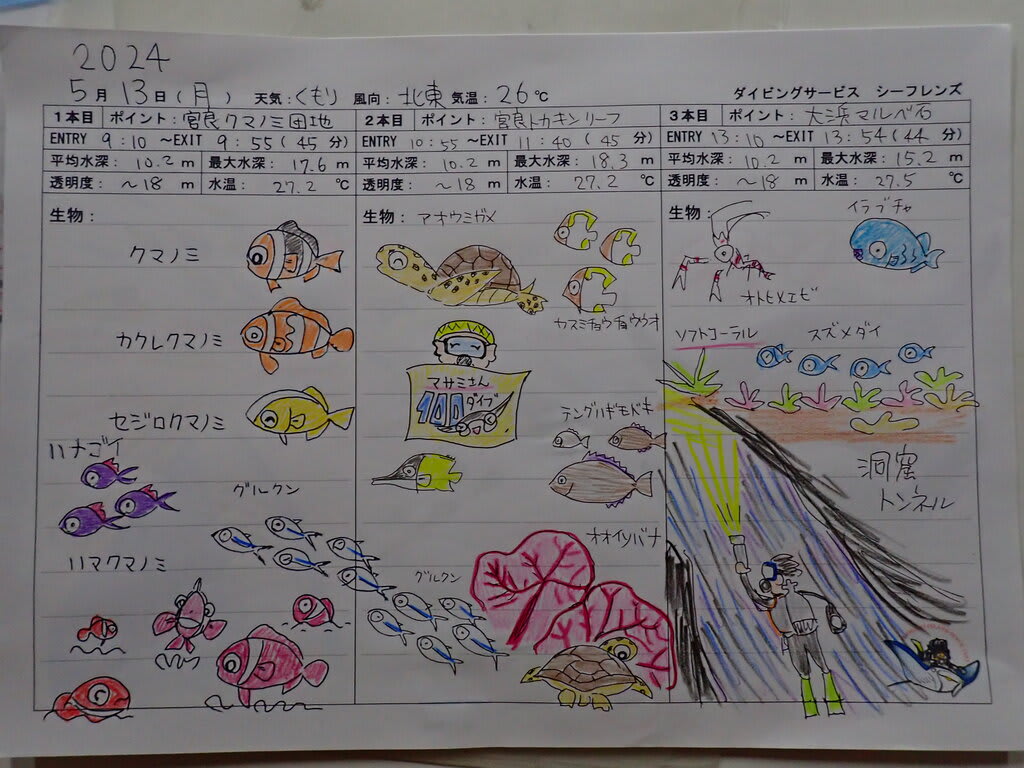 2024
5月13日(月) 天気：くもり 風向：北東 気温：26℃ ダイビングサービス シーフレンズ
1本目 ポイント：宮良クマノミ団地
ENTRY 9:10 ～EXIT 9:55(45分)
平均水深：10.2m 最大水深：17.6m
透明度：～18m 水温：27.2℃
生物：
クマノミ
カクレクマノミ
セジロクマノミ
ハナゴイ
グルクン
ハマクマノミ
2本目 ポイント：宮良トカキンリーフ
ENTRY 10:55 ～EXIT 11:40(45分)
平均水深：10.2m 最大水深：18.3m
透明度：～18m 水温：27.2℃
生物：アオウミガメ
カスミチョウチョウウオ
マサミさん
100ダイブ
テングハギモドキ
オオイソバナ
グルクン
3本目 ポイント：大浜マルベ石
ENTRY 13:10 ～EXIT 13:54(44分)
平均水深：10.2m 最大水深：15.2m
透明度：～18m 水温：27.5℃
生物：
イラブチャ
オトヒメエビ
ソフトコーラル
スズメダイ
洞窟
トンネル